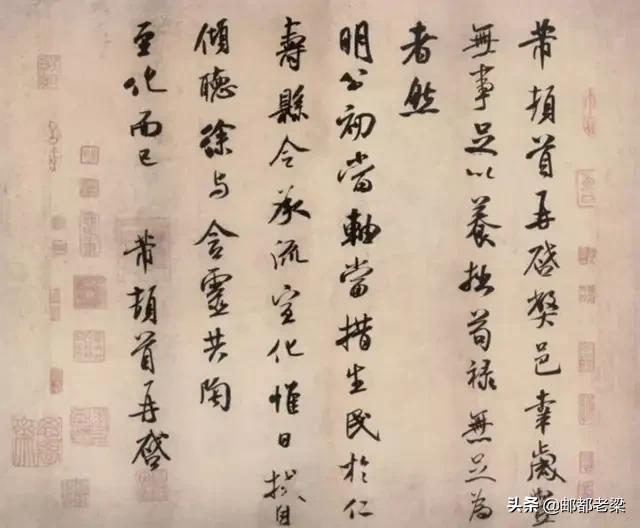 芾頓首再啓弊邑幸歲豐
無事足以養拙苟禄無足為
者然
明公初當軸當措生民於仁
壽縣令承流宣化惟日拭目
傾聽徐与含靈共陶
至化而已 芾頓首再啓
头条 @邮都老梁